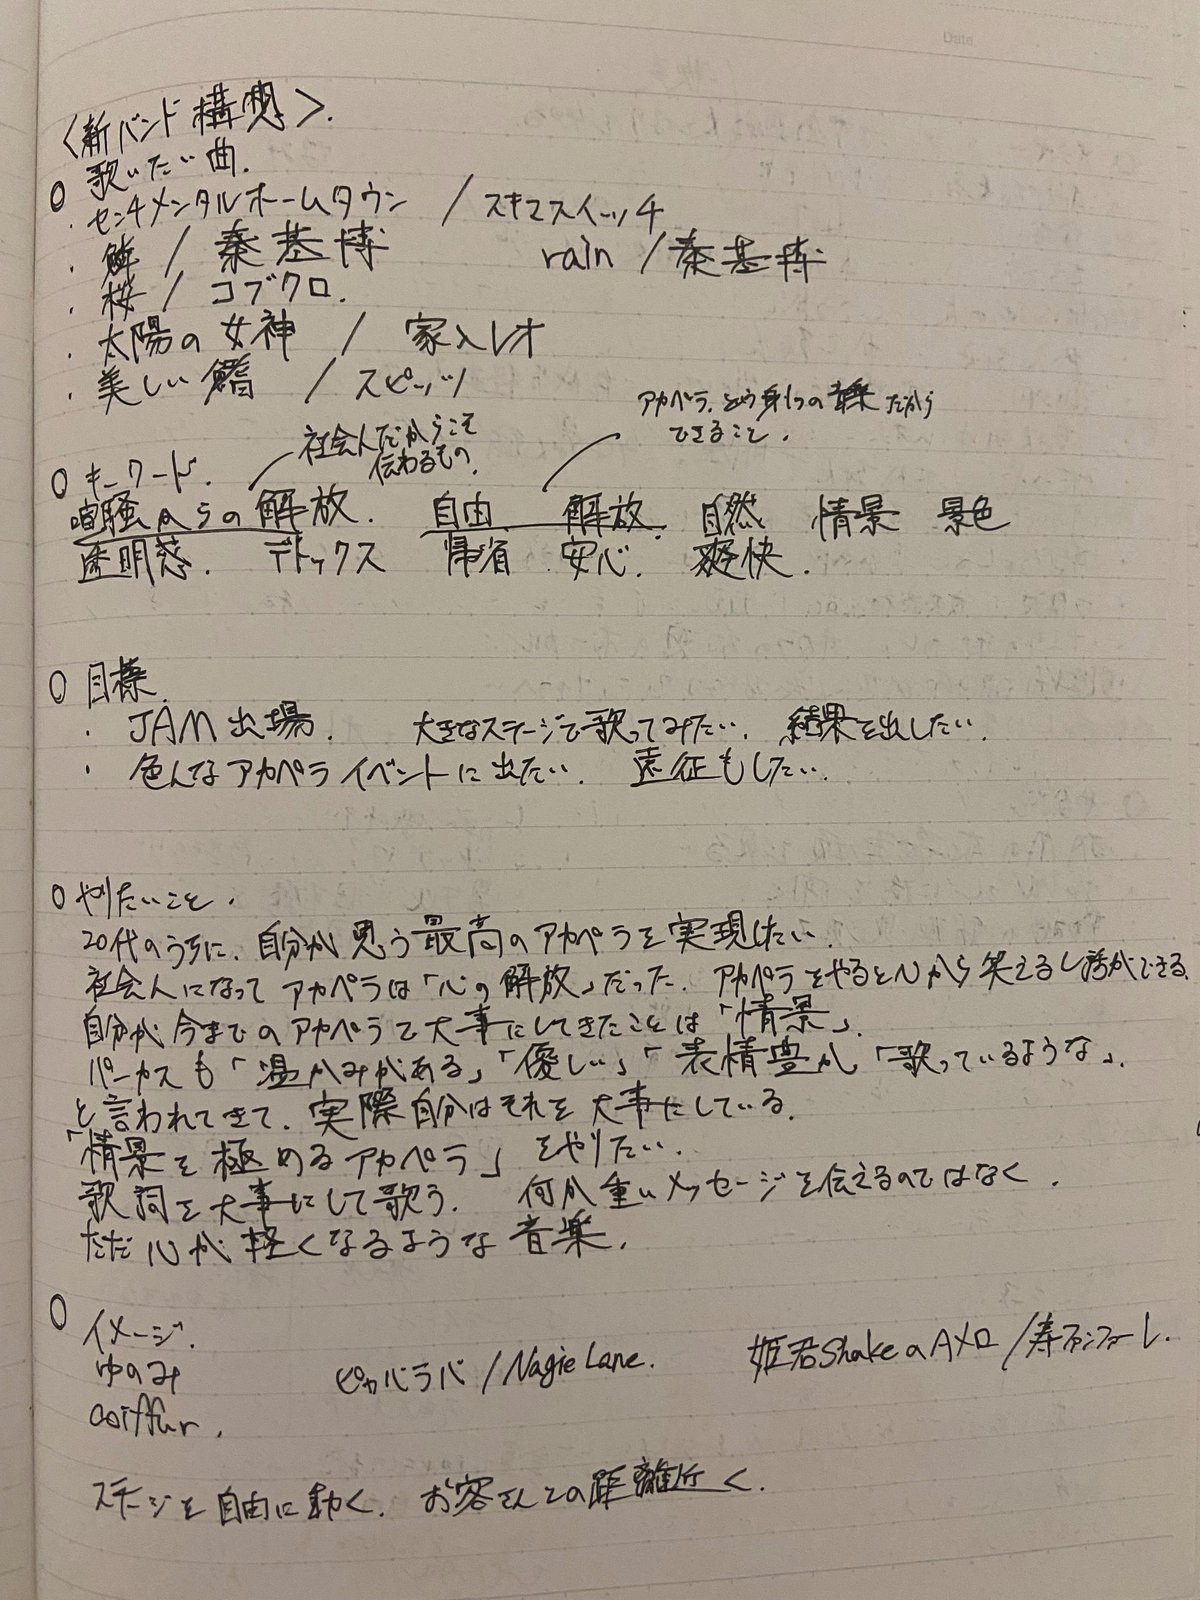 Date
<新バンド構想>.
○ 歌いたい曲.
・センチメンタルホームタウン / スキマスイッチ
・鱗 / 秦基博 rain / 秦基博
・桜 / コブクロ.
・太陽の女神 / 家入レオ
・美しい鰭 / スピッツ
アカペラ、という身1つの音楽だから
できること.
社会人だからこそ
伝わるもの.
○ キーワード.
喧騒からの解放. 自由. 解放. 自然 情景 景色
透明感. デトックス 帰省 安心. 爽快.
○ 目標.
・JAM出場. 大きなステージで歌ってみたい. 結果を出したい.
・色んなアカペライベントに出たい. 遠征もしたい.
○ やりたいこと.
20代のうちに、自分が思う最高のアカペラを実現したい.
社会人になってアカペラは「心の解放」だった. アカペラをやると心から笑えるし話ができる.
自分が今までのアカペラで大事にしてきたことは「情景」.
パーカスも「温かみがある」「優しい」「表情豊か」「歌っているような」.
と言われてきて、実際自分はそれを大事にしている.
「情景を極めるアカペラ」をやりたい.
歌詞を大事にして歌う. 何か重いメッセージを伝えるのではなく.
ただ心が軽くなるような音楽.
○ イメージ.
ゆのみ ピカバラバ / Nagie Lane. 姫君Shakeのアメロ / 寿ファンファーレ.
coiffur.
ステージを自由に動く. お客さんとの距離近く.